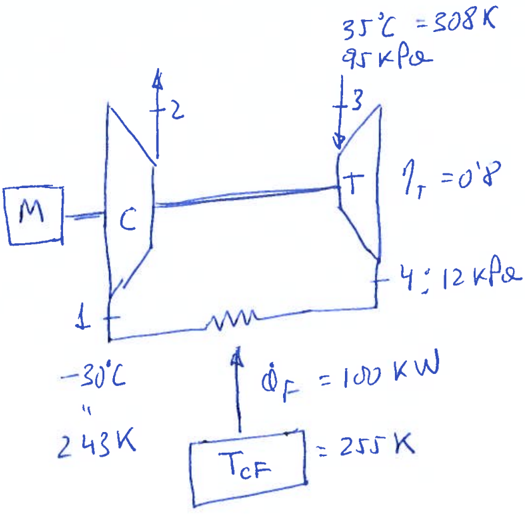 35°C = 308K
95 kPa
2
3
M
C
T
η_T = 0'8
1
4: 12 kPa
-30°C
"
243K
Q̇_F = 100 KW
T_CF
= 255K